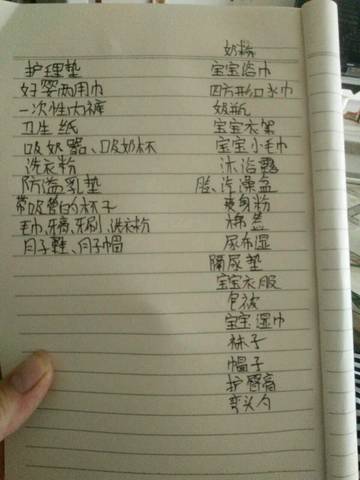 护理垫
好婴两用巾
一次性内裤
卫生纸
吸奶器、吸奶杯
洗衣粉
防溢乳垫
带吸管的杯子
毛巾、牙膏、牙刷、洗衣粉
月子鞋、月子帽
奶粉
宝宝浴巾
四方形口水巾
奶瓶
宝宝衣架
宝宝小毛巾
沐浴露
脸、洗澡盆
爽身粉
棉签
尿布湿
隔尿垫
宝宝衣服
包被
宝宝湿巾
袜子
帽子
护臀膏
弯头勺